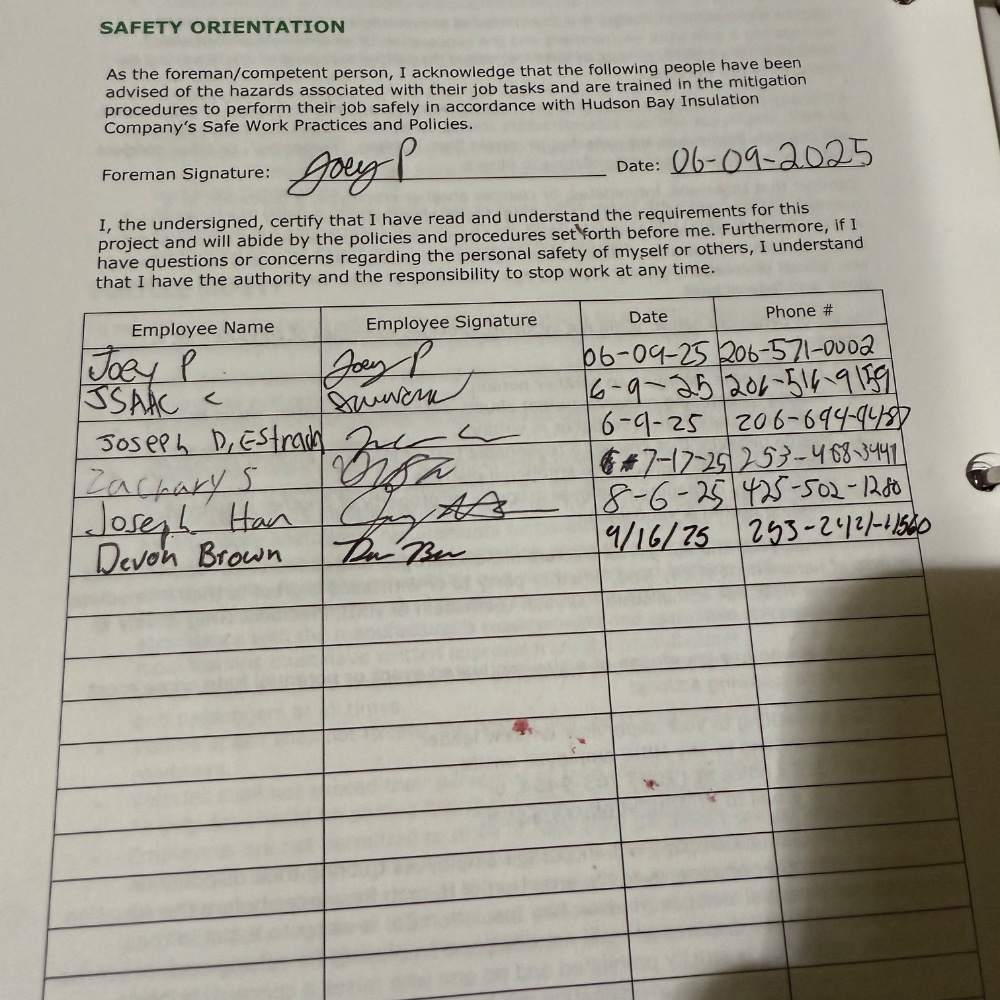 SAFETY ORIENTATION
As the foreman/competent person, I acknowledge that the following people have been
advised of the hazards associated with their job tasks and are trained in the mitigation
procedures to perform their job safely in accordance with Hudson Bay Insulation
Company's Safe Work Practices and Policies.
Foreman Signature: Joey P Date: 06-09-2025
I, the undersigned, certify that I have read and understand the requirements for this
project and will abide by the policies and procedures set forth before me. Furthermore, if I
have questions or concerns regarding the personal safety of myself or others, I understand
that I have the authority and the responsibility to stop work at any time.
Employee Name Employee Signature Date Phone #
Joey P Joey P 06-09-25 206-571-0002
ISAAC 6-9-25
Joseph D, Estrada 6-9-25
Zachary S 7-17-25 253-468-3441
Joseph Han 8-6-25 425-502-1280
Devon Brown 9/16/25